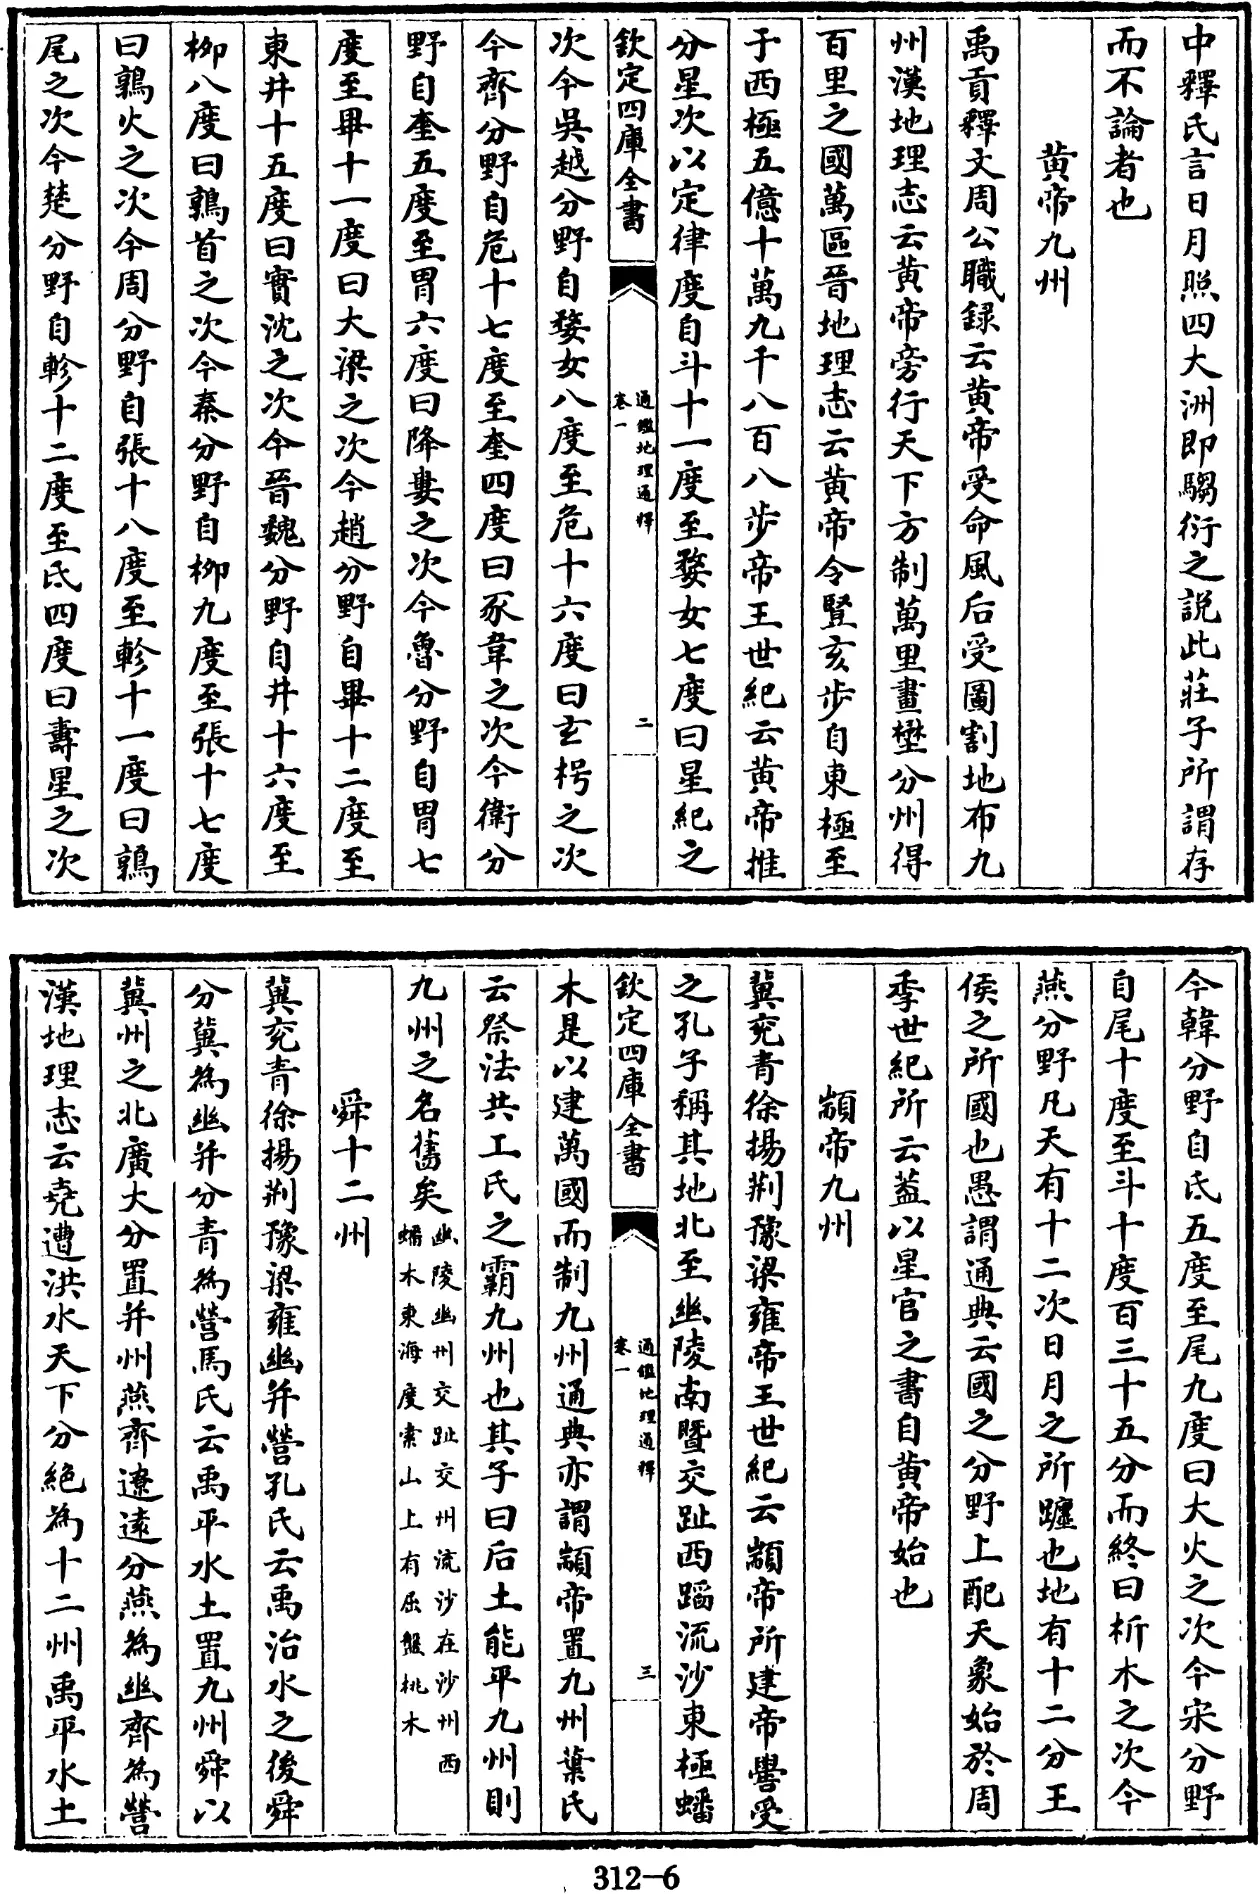 中釋氏言日月照四大洲即騶衍之説此莊子所謂存
而不論者也
黄帝九州
禹貢釋文周公職録云黄帝受命風后受圖割地布九
州漢地理志云黄帝旁行天下方制萬里畫壄分州得
百里之國萬區晉地理志云黄帝令豎亥步自東極至
于西極五億十萬九千八百八步帝王世紀云黄帝推
分星次以定律度自斗十一度至婺女七度曰星紀之
欽定四庫全書
通鑑地理通釋
卷一
二
次今吳越分野自婺女八度至危十六度曰玄枵之次
今齊分野自危十七度至奎四度曰豕韋之次今衛分
野自奎五度至胃六度曰降婁之次今魯分野自胃七
度至畢十一度曰大梁之次今趙分野自畢十二度至
東井十五度曰實沈之次今晉魏分野自井十六度至
柳八度曰鶉首之次今秦分野自柳九度至張十七度
曰鶉火之次今周分野自張十八度至軫十一度曰鶉
尾之次今楚分野自軫十二度至氐四度曰壽星之次
今韓分野自氐五度至尾九度曰大火之次今宋分野
自尾十度至斗十度百三十五分而終曰析木之次今
燕分野凡天有十二次日月之所躔也地有十二分王
侯之所國也愚謂通典云國之分野上配天象始於周
季世紀所云葢以星官之書自黄帝始也
顓帝九州
冀兖青徐揚荆豫梁雍帝王世紀云顓帝所建帝嚳受
之孔子稱其地北至幽陵南暨交趾西蹈流沙東極蟠
欽定四庫全書
通鑑地理通釋
卷一
三
木是以建萬國而制九州通典亦謂顓帝置九州葉氏
云祭法共工氏之霸九州也其子曰后土能平九州則
九州之名舊矣
幽陵幽州交趾交州流沙在沙州西
蟠木東海度索山上有屈盤桃木
舜十二州
冀兖青徐揚荆豫梁雍幽并營孔氏云禹治水之後舜
分冀為幽并分青為營馬氏云禹平水土置九州舜以
冀州之北廣大分置并州燕齊遼遠分燕為幽齊為營
漢地理志云堯遭洪水天下分絶為十二州禹平水土
312-6